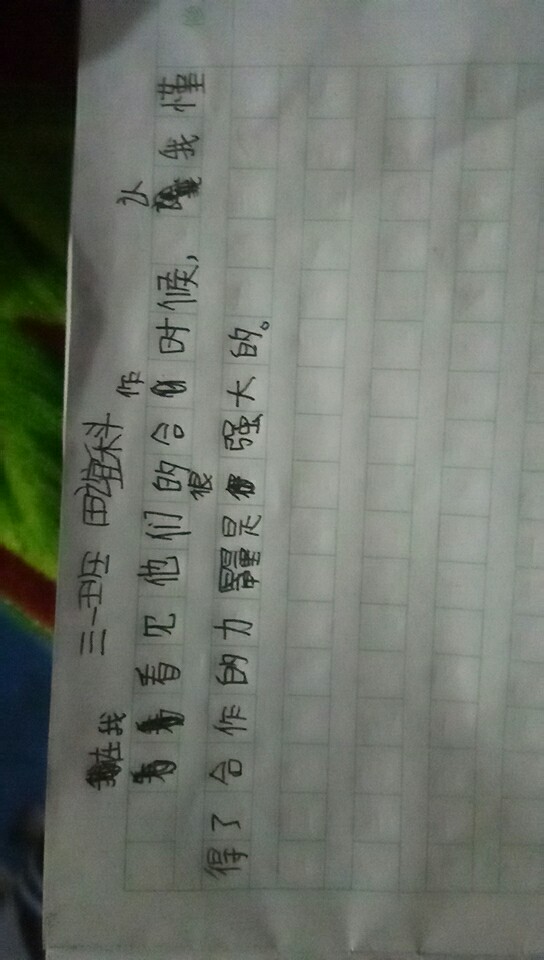 三一班 田科
在我看见他们的合作时候，我懂
得了合作的力量是很强大的。